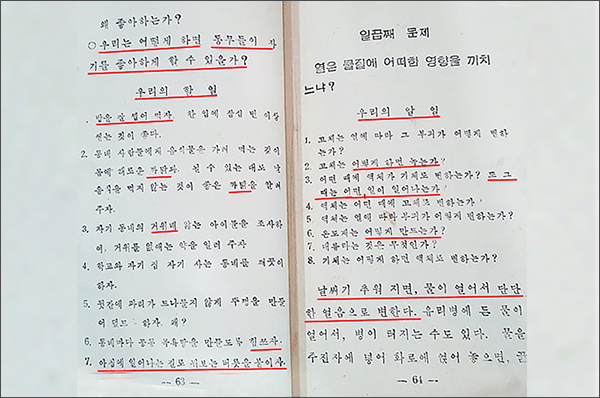 왜 좋아하는가?
○우리는 어떻게 하면 동무들이 자
기를 좋아하게 할 수 있을가?
우리의 할 일
1. 밥을 잘 씹어 먹자. 한 입에 삼십 번 이상
씹는 것이 좋다.
2. 동네 사람들에게 음식물을 가려 먹는 것이
몸에 해로운 까닭과. 설 수 있는 때도 날
음식을 먹지 않는 것이 좋은 까닭을 알려
주자.
3. 자기 동네의 거위배 앓는 아이들을 조사하
여, 거위를 없애는 약을 일러 주자
4. 학교와 자기 집 자기 사는 동네를 깨끗이
하자.
5. 뒷간에 파리가 드나들지 않게 뚜껑을 만들
어 덮드 하자. 왜?
6. 동네마다 공동 목욕탕을 만들도록 힘쓰자.
7. 아침에 일어나는 길로 뒤보는 버릇을 붙이자.
— 63 —
일곱째 문제
열은 물질에 어떠한 영향을 끼치
느냐?
우리의 알 일
1. 고체는 열에 따라 그 부피가 어떻게 변하
는가?
2. 고체는 어떻게 하면 녹는가?
3. 어떤 때에 액체가 기체로 변하는가? 또 그
때는 어떤 일이 일어나는가
4. 액체는 어떤 때에 고체로 변하는가?
5 액체는 열에 따라 부피가 어떻게 변하는가?
6. 온도계는 어떻게 만드는가?
7. 대류라는 것은 무엇인가?
8. 기체는 어떻게 하면 액체로 변하는가?
날씨가 추워 지면, 물이 얼어서 단단
한 얼음으로 변한다. 유리병에 든 물이
얼어서, 병이 터지는 수도 있다. 물을
주전자에 넣어 화로에 얹어 놓으면, 끓
— 64 —